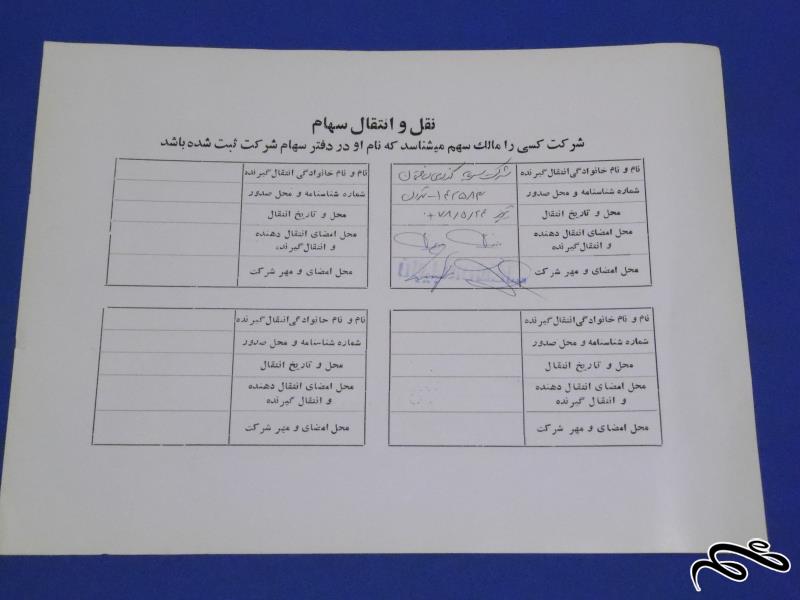 نقل و انتقال سهام
شرکت کسی را مالك سهم میشناسد که نام او در دفتر سهام شرکت ثبت شده باشد
نام و نام خانوادگی انتقال گیرنده
شماره شناسنامه و محل صدور
محل و تاریخ انتقال
۷۸/۵/۲۴
محل امضای انتقال دهنده
و انتقال گیرنده
محل امضای و مهر شرکت
نام و نام خانوادگی انتقال گیرنده
شماره شناسنامه و محل صدور
محل و تاریخ انتقال
محل امضای انتقال دهنده
و انتقال گیرنده
محل امضای و مهر شرکت
نام و نام خانوادگی انتقال گیرنده
شماره شناسنامه و محل صدور
محل و تاریخ انتقال
محل امضای انتقال دهنده
و انتقال گیرنده
محل امضای و مهر شرکت
نام و نام خانوادگی انتقال گیرنده
شماره شناسنامه و محل صدور
محل و تاریخ انتقال
محل امضای انتقال دهنده
و انتقال گیرنده
محل امضای و مهر شرکت